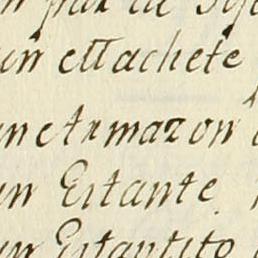 un par de
un etTachete
un Armazon
un Estante
un Estantito